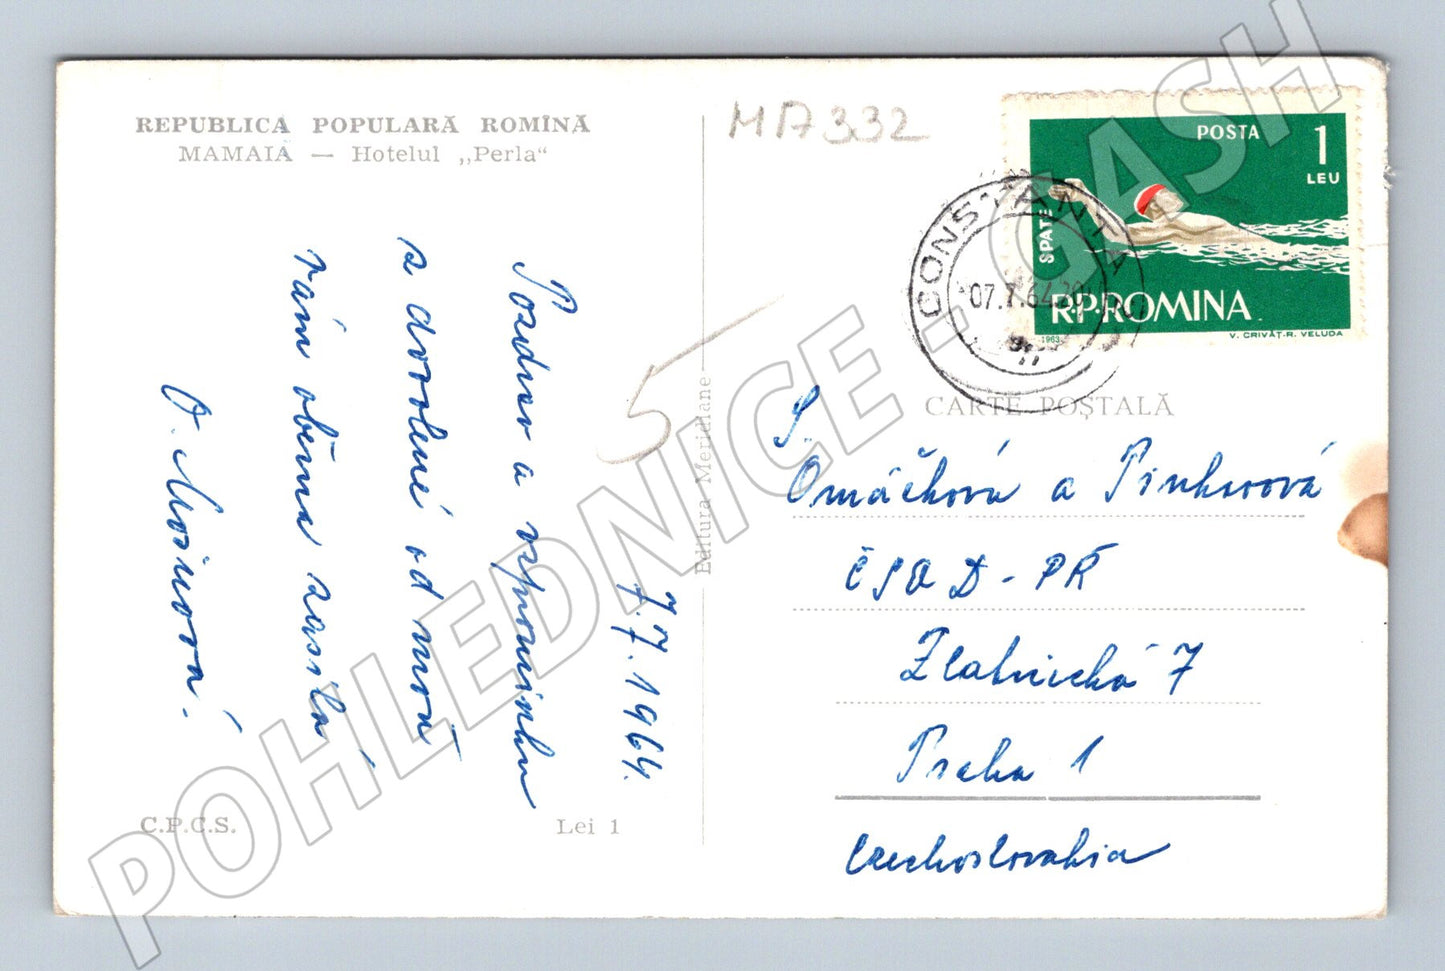 REPUBLICA POPULARĂ ROMÎNĂ
MAMAIA — Hotelul „Perla“
MA 332
7.7.1964.
Pozdrav a vzpomínku
z dovolené od moře
Vám oběma zasílá
Nosková.
5
C.P.C.S.
Lei 1
Editura Meridiane
POSTA
1
LEU
SPATE
R.P.ROMINA
1963
V. CRIVĂȚ-R. VELUDA
CONSTANTA
07.7.64.20
CARTE POȘTALĂ
S.
Omáčková a Pinkerová
ČSAD-PŘ
Zlatnická 7
Praha 1
Czechoslovakia
POHLEDNICE - GASH